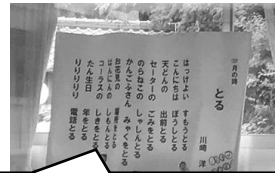 月の詩
とる
川崎 洋
はっけよい すもうとる
こんにちは ぼうしとる
天どんの 出前とる
セーターの ごみをとる
のらねこの しゃしんとる
かんごふさん みゃくをとる
お花見の 場所をとる
はんにんの しもんとる
コーラスの しきをとる
たん生日 年をとる
りりりりり 電話とる